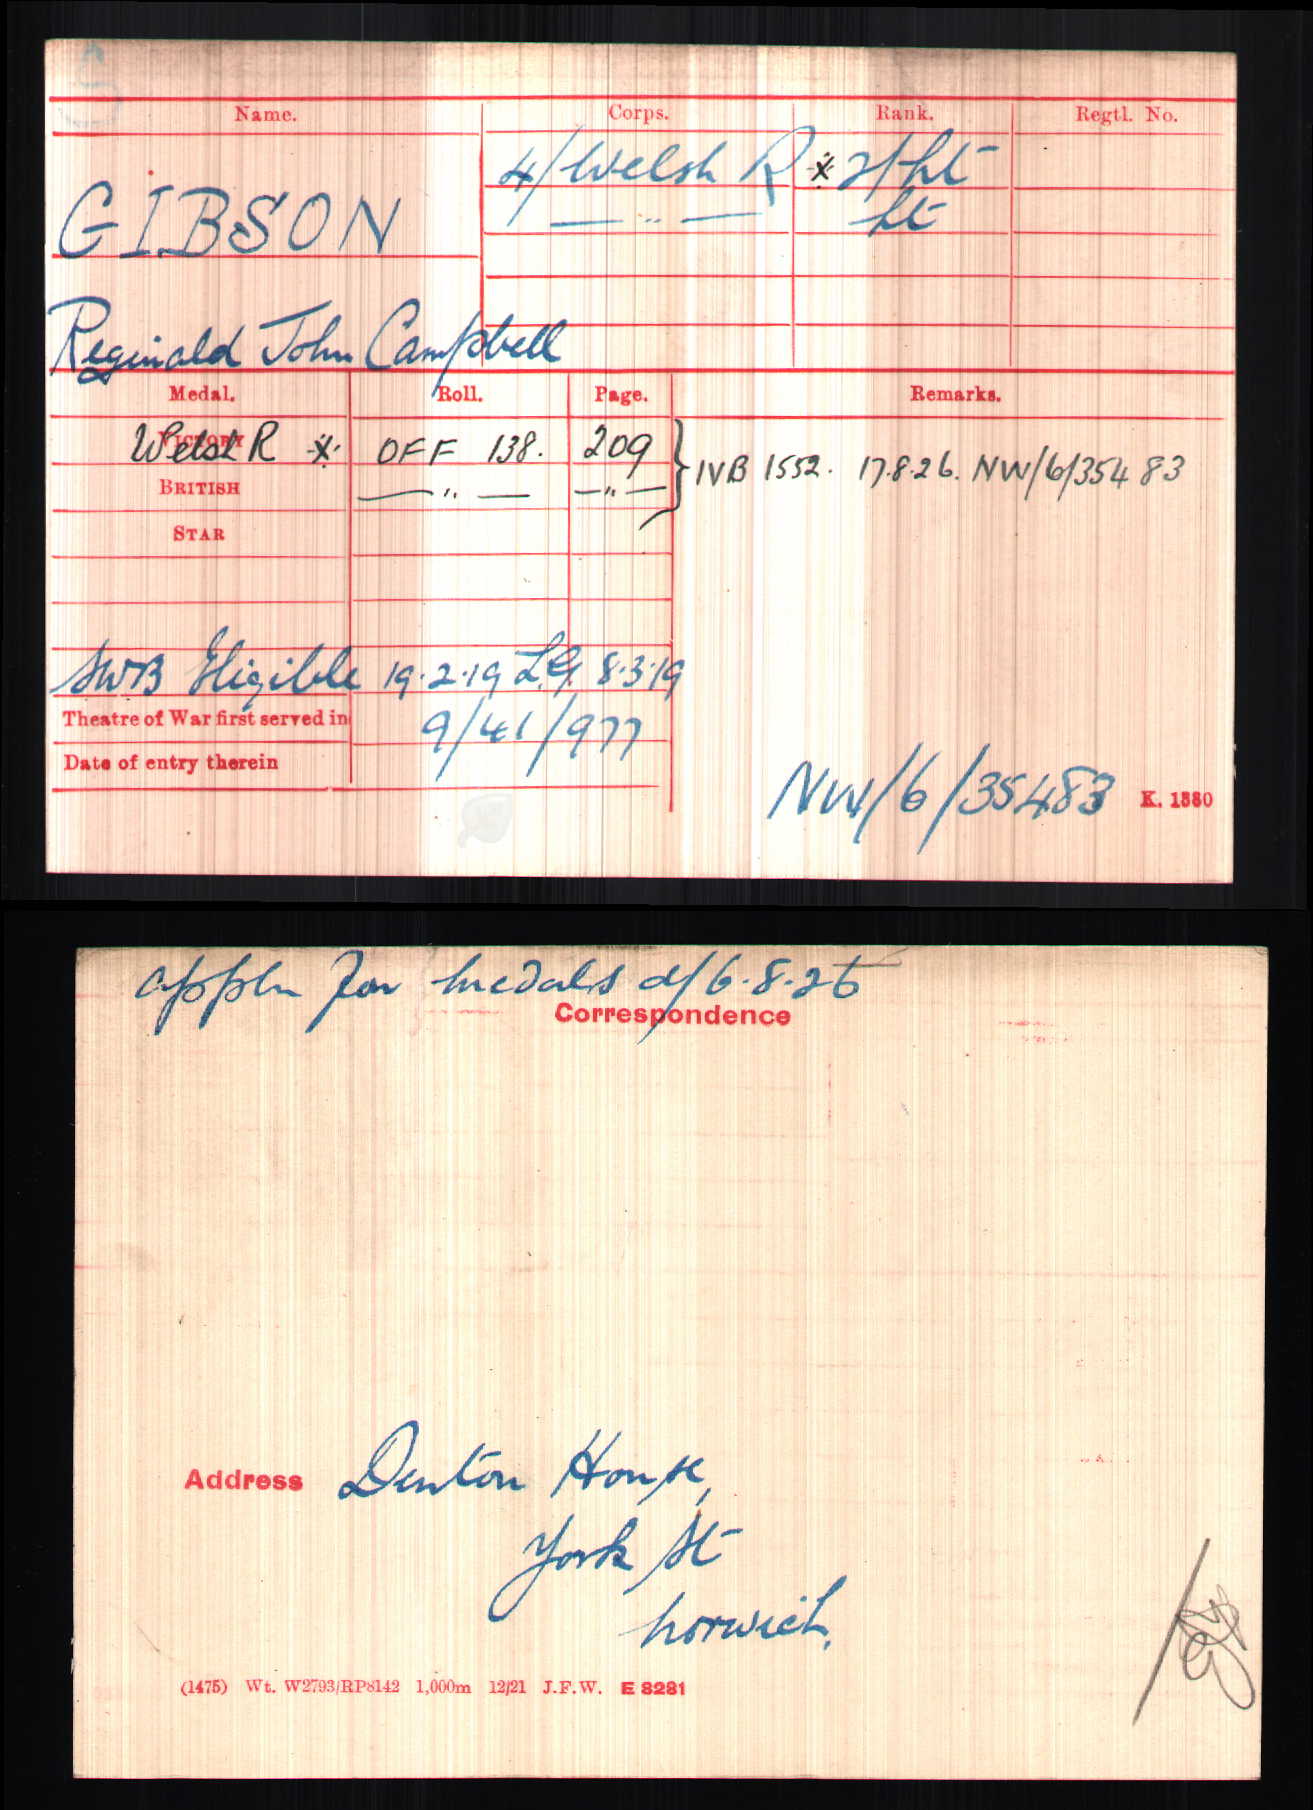 Name. Corps. Rank. Regtl. No.
GIBSON 4/Welsh R * 2/Lt
— " — Lt
Reginald John Campbell
Medal. Roll. Page. Remarks.
VICTORY Welsh R * OFF 138. 209 IVB 1552. 17.8.26. NW/6/35483
BRITISH — " — — " —
STAR
SWB Eligible 19.2.19 L.G. 8.3.19
Theatre of War first served in 9/41/977
Date of entry therein
NW/6/35483 K. 1380
Appln for medals d/6.8.26
Correspondence
Address Denton House,
York St
Norwich.
(1475) Wt. W2793/RP8142 1,000m 12/21 J.F.W. E 8281